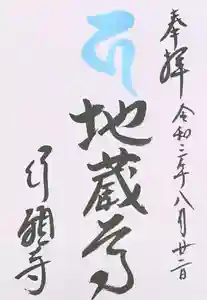 奉拝
令和二年八月廿二日
地蔵尊
行願寺